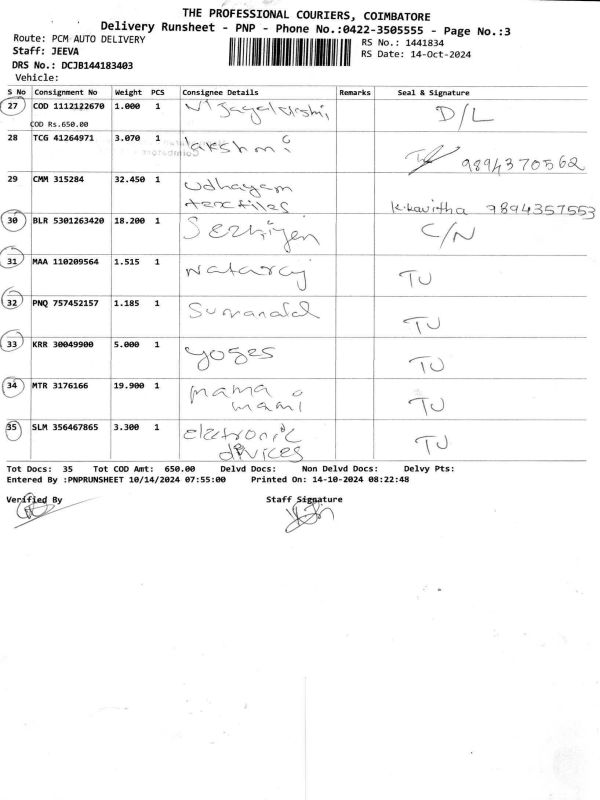 THE PROFESSIONAL COURIERS, COIMBATORE
Delivery Runsheet - PNP - Phone No.:0422-3505555 - Page No.:3
Route: PCM AUTO DELIVERY
RS No.: 1441834
Staff: JEEVA
RS Date: 14-Oct-2024
DRS No.: DCJB144183403
Vehicle:
S No Consignment No Weight PCS Consignee Details Remarks Seal & Signature
27 COD 1112122670 1.000 1 D/L
COD Rs.650.00
28 TCG 41264971 3.070 1 lakshmi 9894370562
29 CMM 315284 32.450 1 udhayam
textiles K.Kavitha 9894357553
30 BLR 5301263420 18.200 1 Sezhiyen C/N
31 MAA 110209564 1.515 1 Nataraj TU
32 PNQ 757452157 1.185 1 TU
33 KRR 30049900 5.000 1 yoges TU
34 MTR 3176166 19.900 1 mama
mami TU
35 SLM 356467865 3.300 1 electronic
divices TU
Tot Docs: 35 Tot COD Amt: 650.00 Delvd Docs: Non Delvd Docs: Delvy Pts:
Entered By :PNPRUNSHEET 10/14/2024 07:55:00 Printed On: 14-10-2024 08:22:48
Verified By Staff Signature